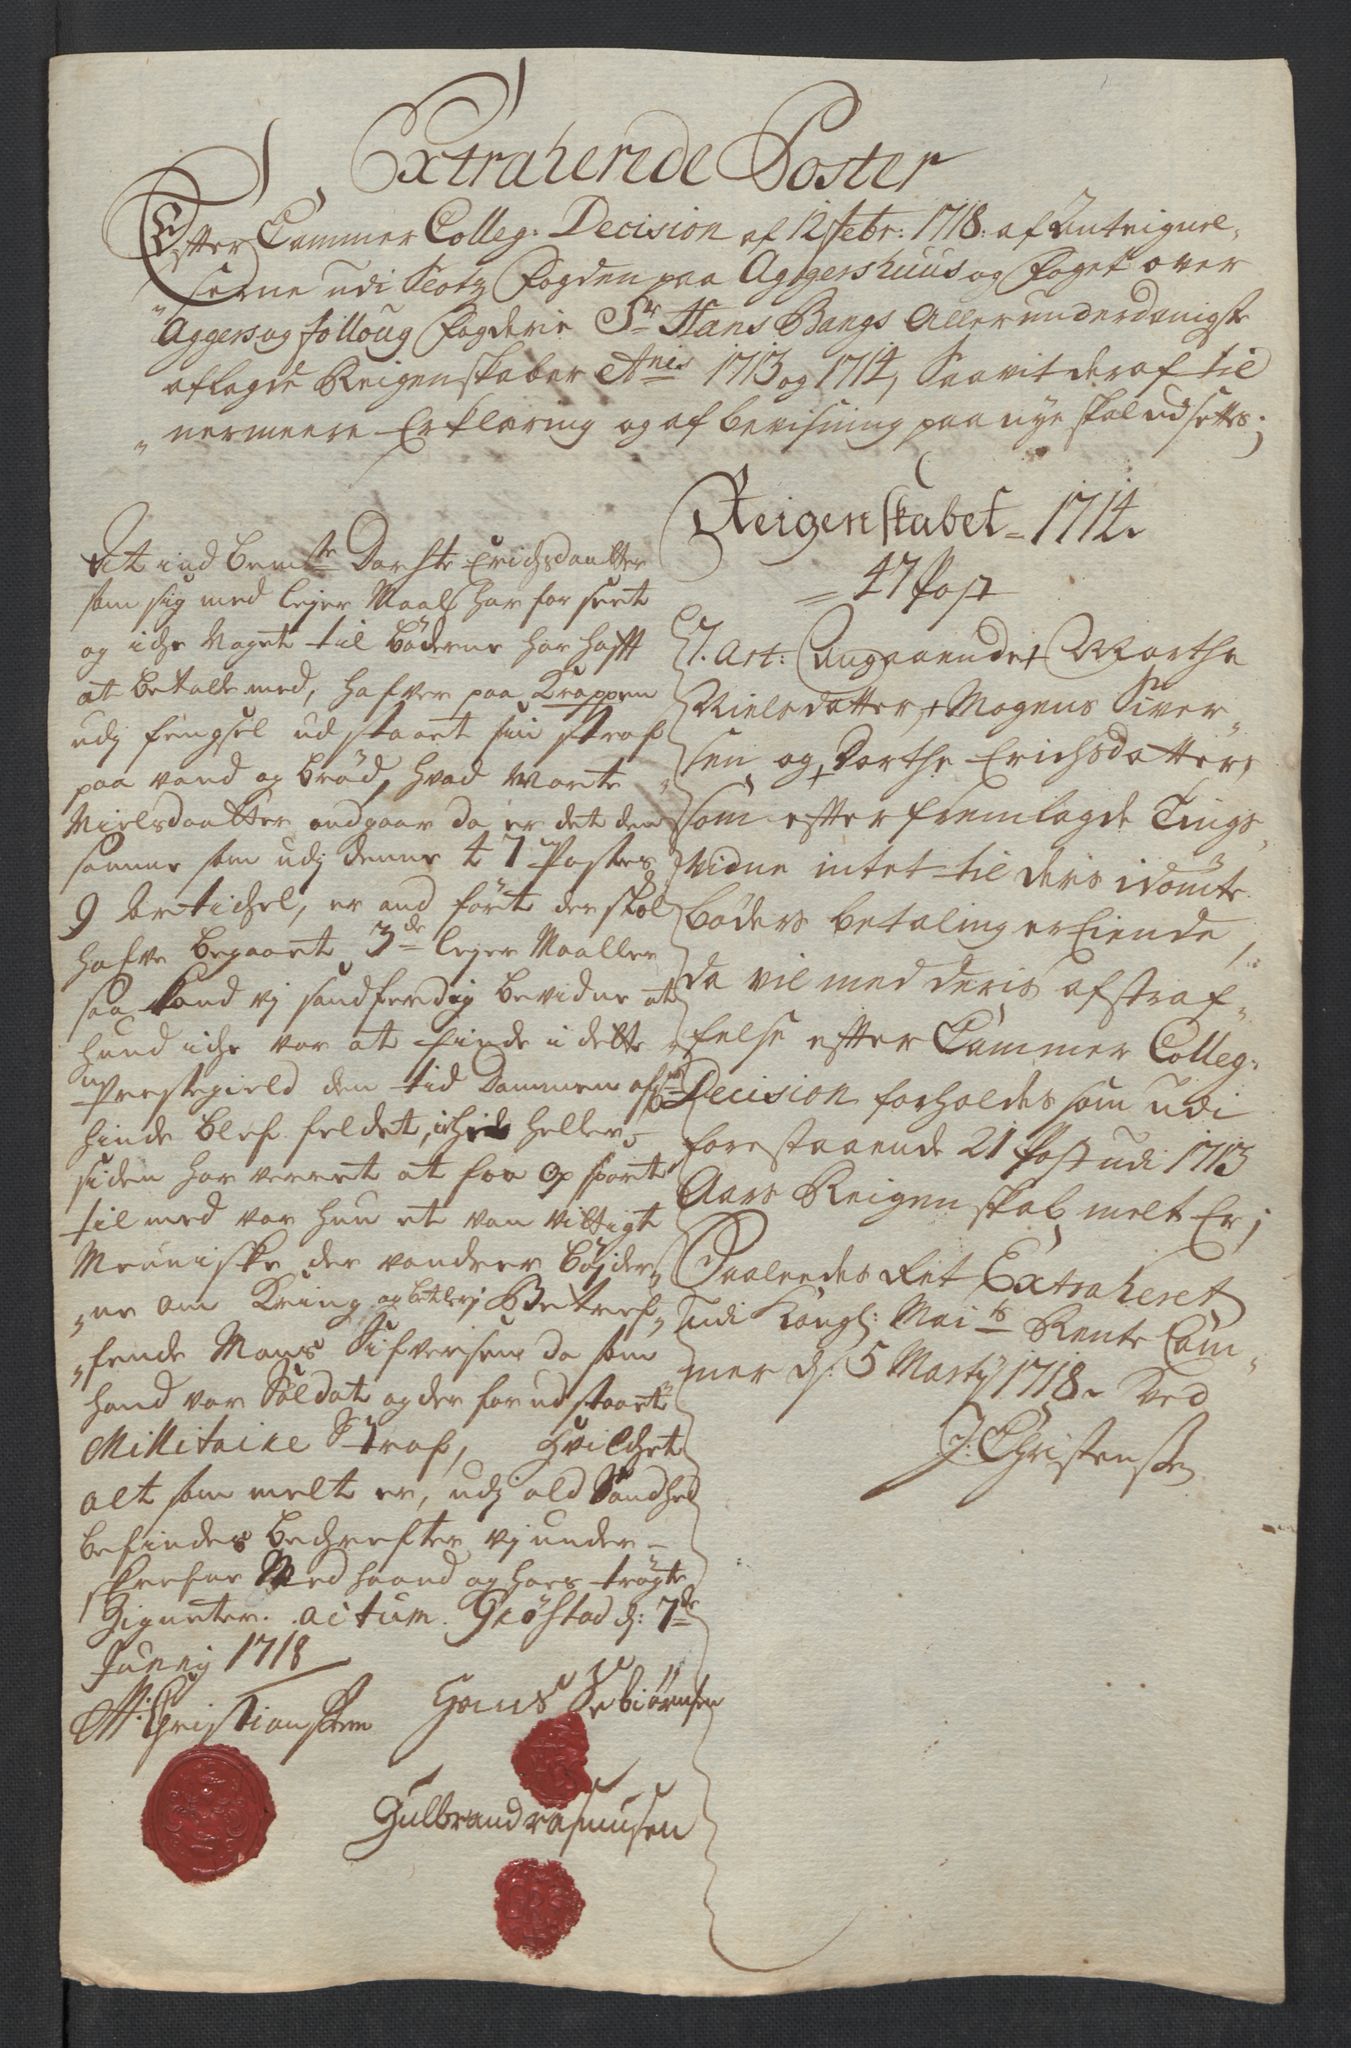 Extraherede Poster
Efter Cammer Colleg: Decision af 12 febr: 1718. af Anteignel„
„serne udi Slotz Fogden paa Aggershuus og Foget over
Aggers og folloug Fogderie Sr Hans Bangs Allerunderdanigst
aflagde Reigenskaber Anis 1713 og 1714, Saavit deraf til
„nermeere Erklæring og af bevisning paa nye skal udsettes;
Reigenskabet 1714.
47 Post
7. Art: Angaaende Marthe
Nielsdatter, Mogens Siver„
sen, og Dorthe Erichsdatter,
som efter fremlagde Tings„
vidne intet til deris idömte
böders betaling er Eiende,
da vil med deris afstraf„
felse efter Cammer Colleg:
Decision forholdes som udi
forestaaende 21 Post udi 1713
Aars Reigenskab melt Er;
Saaledes Ret Extraheret
udi Kongl: Maits Rente Cam„
mer d: 5 Marty 1718. Ved
J: Christensen
At ind bemte Dorthe Erichsdaatter
som sig med lejer Maal har for seet
og iche Noget til böderne har hafft
at betale med, hafver paa Trappen
udj fengsel udstaaet sin straf
paa vand og bröd, hvad Marte
Nielsdaatter andgaar da er det den
samme som udj denne 47 Postes
9 Artichel, er and fört der skal
hafve begaaet 3de lejer Maaller
saa kand vj sandferdig bevidne at
hund iche var at finde i dette
Prestegield den tid Dommen ofver
hinde blef feldet, iche heller
siden har veret at faa op sport
til med var hun et van vittigt
Menniske der vandrer böjder„
„ne om Kring og betlerj Betref„
„fende Mons Sifversen da som
hand var Soldat og derfor udstaaet
Millitaire Straf, hvilchet
alt som melt er, udj ald Sandhed
befindes bechrefter vj under„
skrefne Med haand og hoes trögte
Signeter. actum. Griöstad d: 7de
Junij 1718
N: Christiansen
Hans Torbiörnsen
Gulbrand rasmusen